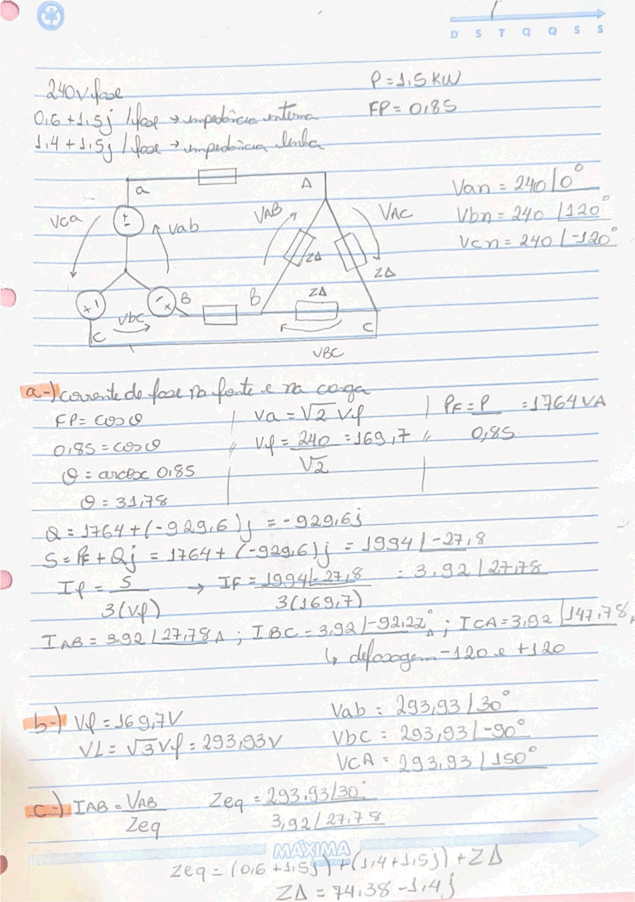 D S T Q Q S S
240V fase
P = 1,5 KW
0,6 + 1,5j / fase → impedância interna
FP = 0,85
1,4 + 1,5j / fase → impedância linha
a
A
Van = 240 /0°
Vbn = 240 /120°
Vcn = 240 /-120°
Vca
Vab
VAB
VAC
Z∆
Z∆
Z∆
B
B
Vbc
C
C
VBC
a-) corrente de fase na fonte e na carga
FP = cos θ
Va = √2 Vf
PF = P/0,85 = 1764 VA
0,85 = cos θ
Vf = 240/√2 = 169,7
θ = 31,78
Q = 1764 + (-929,6)j = -929,6j
S = PF + Qj = 1764 + (-929,6)j = 1994 /-27,8
If = S/3(Vf) → IF = 1994/-27,8 / 3(169,7) = 3,92 /27,78
IAB = 3,92 /27,78 A ; IBC = 3,92 /-92,22° A ; ICA = 3,92 /147,78
↳ defasagem -120 e +120
b-) Vf = 169,7V
VL = √3 Vf = 293,93V
Vab = 293,93 /30°
Vbc = 293,93 /-90°
VCA = 293,93 /150°
c-) IAB = VAB/Zeq
Zeq = 293,93/30° / 3,92 /27,78
MÁXIMA
Zeq = (0,6 + 1,5j) + (1,4 + 1,5j) + Z∆
Z∆ = 74,38 - 1,4j